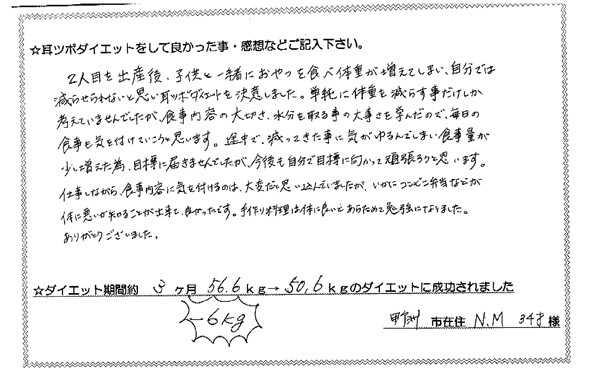 ☆耳ツボダイエットをして良かった事・感想などご記入下さい。
2人目を出産後、子供と一緒におやつを食べ体重が増えてしまい、自分では
減らせられないと思い耳ツボダイエットを決意しました。単純に体重を減らす事だけしか
考えていませんでしたが、食事内容の大切さ、水分を取る事の大事さを学んだので、毎日の
食事も気を付けていこうと思います。途中で、減ってきた事に気がゆるんでしまい食事量が
少し増えた為、目標に届きませんでしたが、今後も自分で目標に向かって頑張ろうと思います。
仕事しながら、食事内容に気を付けるのは、大変だと思い込んでいましたが、いかにコンビニ弁当などが
体に悪いか知ることが出来て、良かったです。手作り料理は体に良いとあらためて勉強になりました。
ありがとうございました。
☆ダイエット期間約 3 ヶ月 56.6kg→50.6kgのダイエットに成功されました
-6kg
甲州 市在住 N.M 34才 様